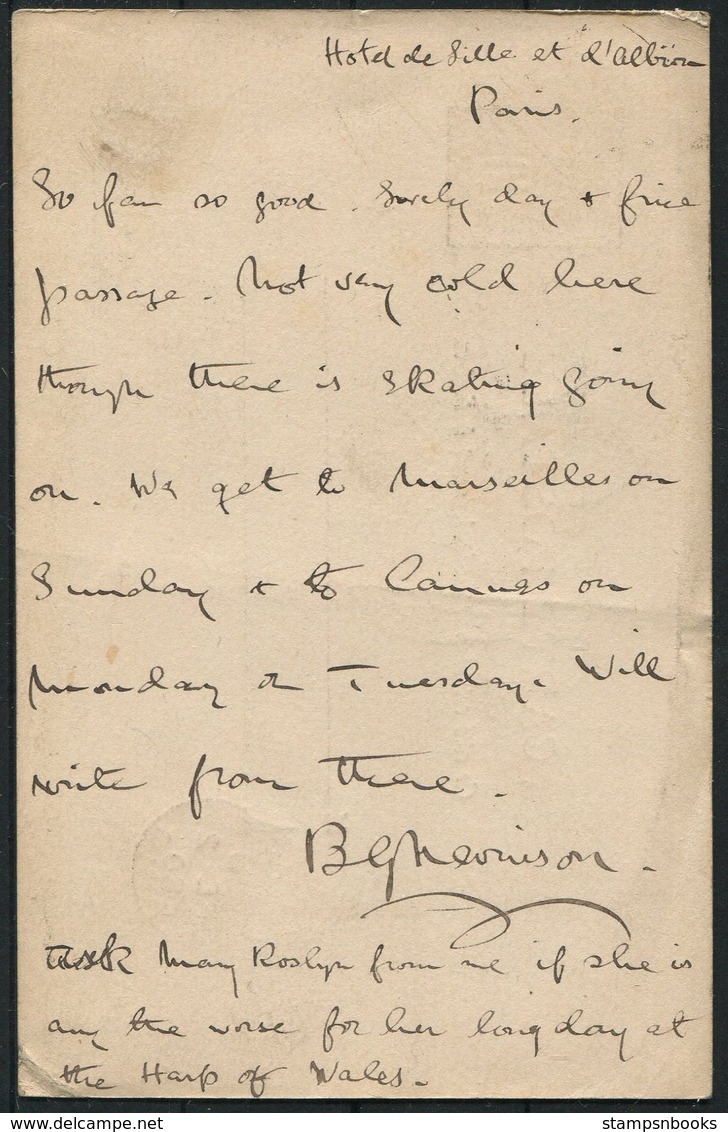 Hotel de Lille et d'Albion
Paris.
So far so good. Lovely day & fine
passage. Not very cold here
though there is skating going
on. We get to Marseilles on
Sunday & to Cannes on
Monday or Tuesday. Will
write from there.
B G Nevinson.
Ask Mary Roslyn from me if she is
any the worse for her long day at
the Harp of Wales.
stampsnbooks